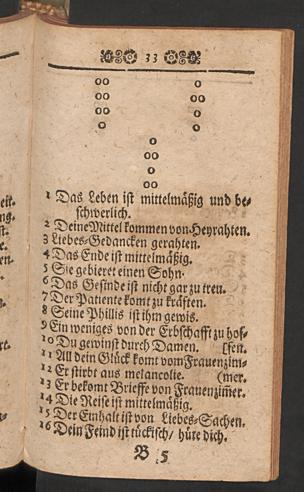 33
1 Das Leben ist mittelmäßig und be-
schwerlich.
2 Deine Mittel kommen von Heyrahten.
3 Liebes-Gedancken gerahten.
4 Das Ende ist mittelmäßig.
5 Sie gebieret einen Sohn.
6 Das Gesinde ist nicht gar zu treu.
7 Der Patiente komt zu kräften.
8 Seine Phillis ist ihm gewis.
9 Ein weniges von der Erbschafft zu hof-
10 Du gewinst durch Damen. [fen.
11 All dein Glück komt vom Frauenzim-
12 Er stirbt aus melancolie. (mer.
13 Er bekomt Brieffe von Frauenzimer.
14 Die Reise ist mittelmäßig.
15 Der Einhalt ist von Liebes-Sachen.
16 Dein Feind ist tückisch/ hüte dich.
B 5